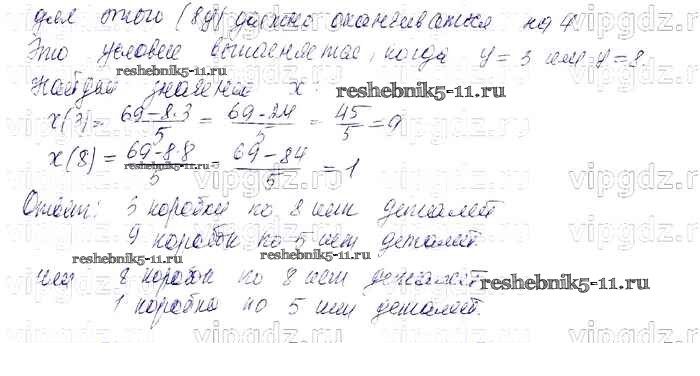 для этого (8y) должно оканчиваться на 4
Это условие выполняется, когда y = 3 или y = 8.
Найдём значения x:
x(3) = 69-8·3/5 = 69-24/5 = 45/5 = 9
x(8) = 69-8·8/5 = 69-84/5 = 1
Ответ: 3 коробки по 8 шт деталей
9 коробок по 5 шт деталей.
или 8 коробок по 8 шт деталей
1 коробка по 5 шт деталей.
reshebnik5-11.ru
reshebnik5-11.ru
reshebnik5-11.ru
reshebnik5-11.ru
reshebnik5-11.ru
reshebnik5-11.ru
vipgdz.ru